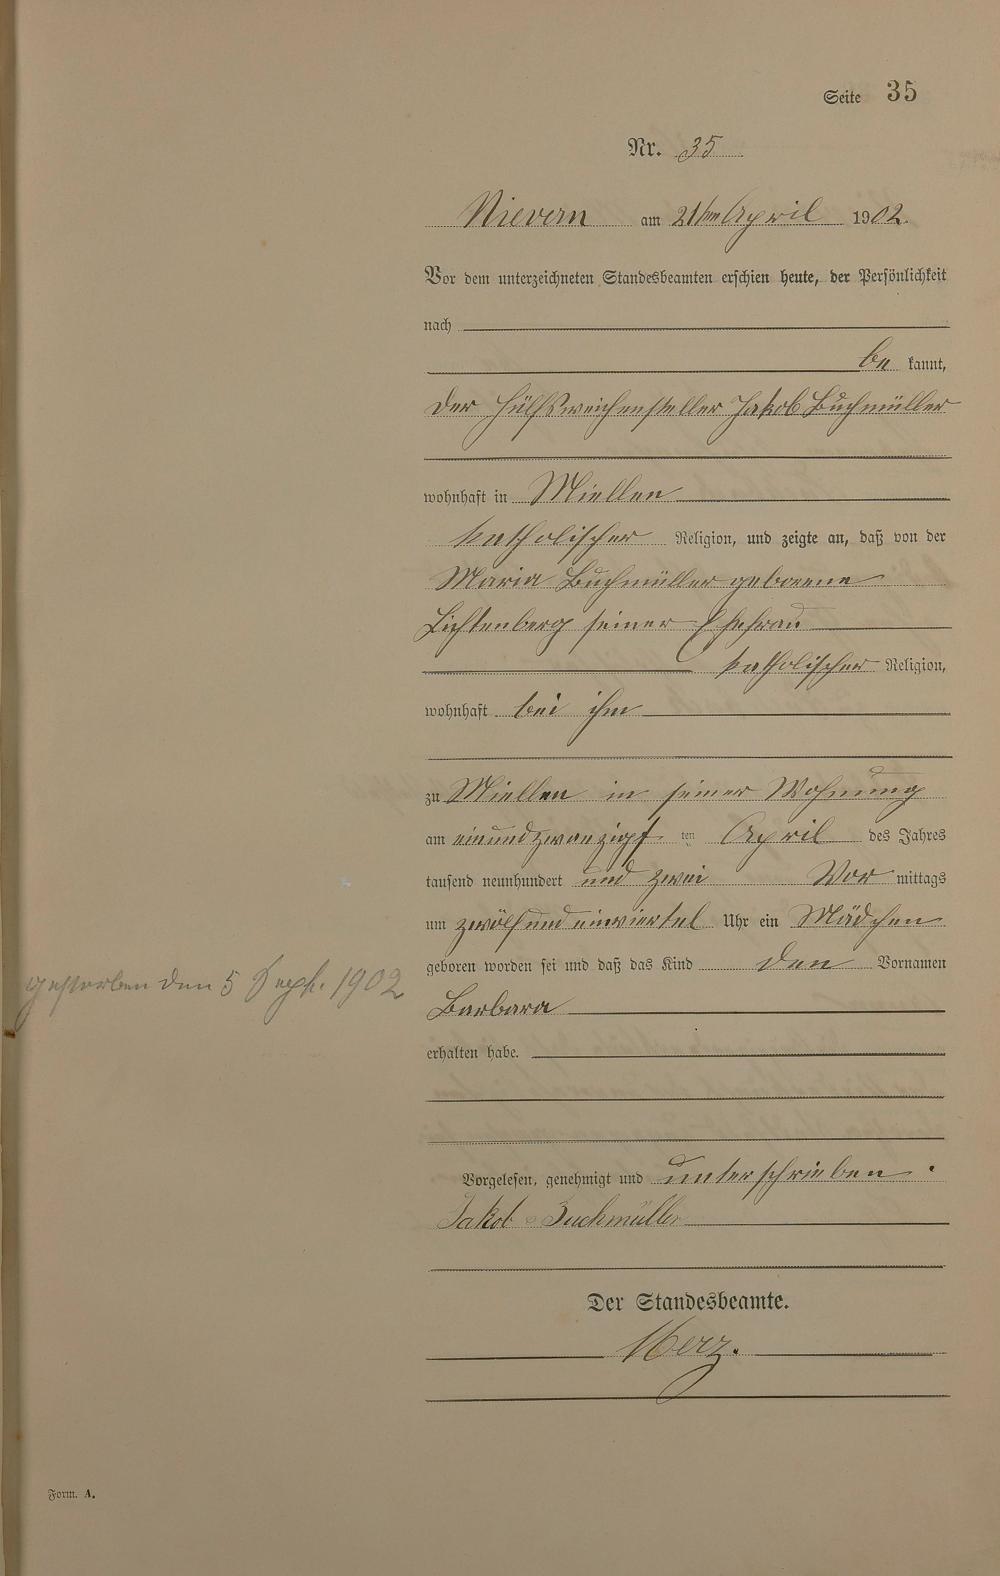 Seite 35
Nr. 35
Nievern am 21ten April 1902.
Vor dem unterzeichneten Standesbeamten erschien heute, der Persönlichkeit
nach
be kannt,
der Hülfsweichensteller Jakob Buchmüller
wohnhaft in Miellen
katholischer Religion, und zeigte an, daß von der
Maria Buchmüller geborene
Lichtenberg seiner Ehefrau
katholischer Religion,
wohnhaft bei ihm
zu Miellen in seiner Wohnung
am einundzwanzigst ten April des Jahres
tausend neunhundert und zwei Vor mittags
um zwölf und einviertel Uhr ein Mädchen
geboren worden sei und daß das Kind den Vornamen
gestorben den 5 Sept. 1902
Barbara
erhalten habe.
Vorgelesen, genehmigt und unterschrieben
Jakob Buchmüller
Der Standesbeamte.
Merz.
Form. A.